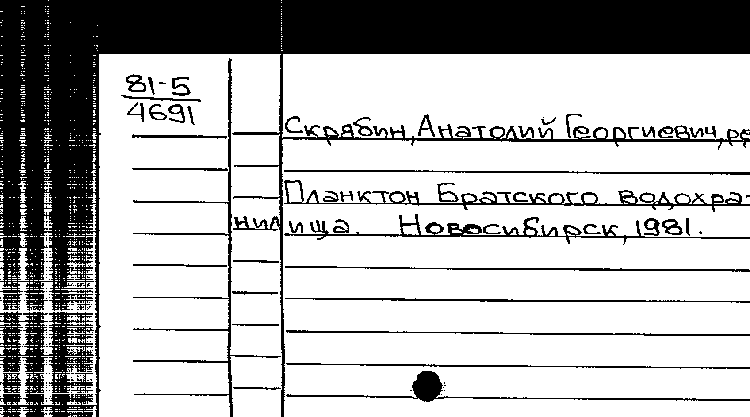 81-5
4691
Скрябин, Анатолий Георгиевич, ре
Планктон Братского водохра-
нилища. Новосибирск, 1981.